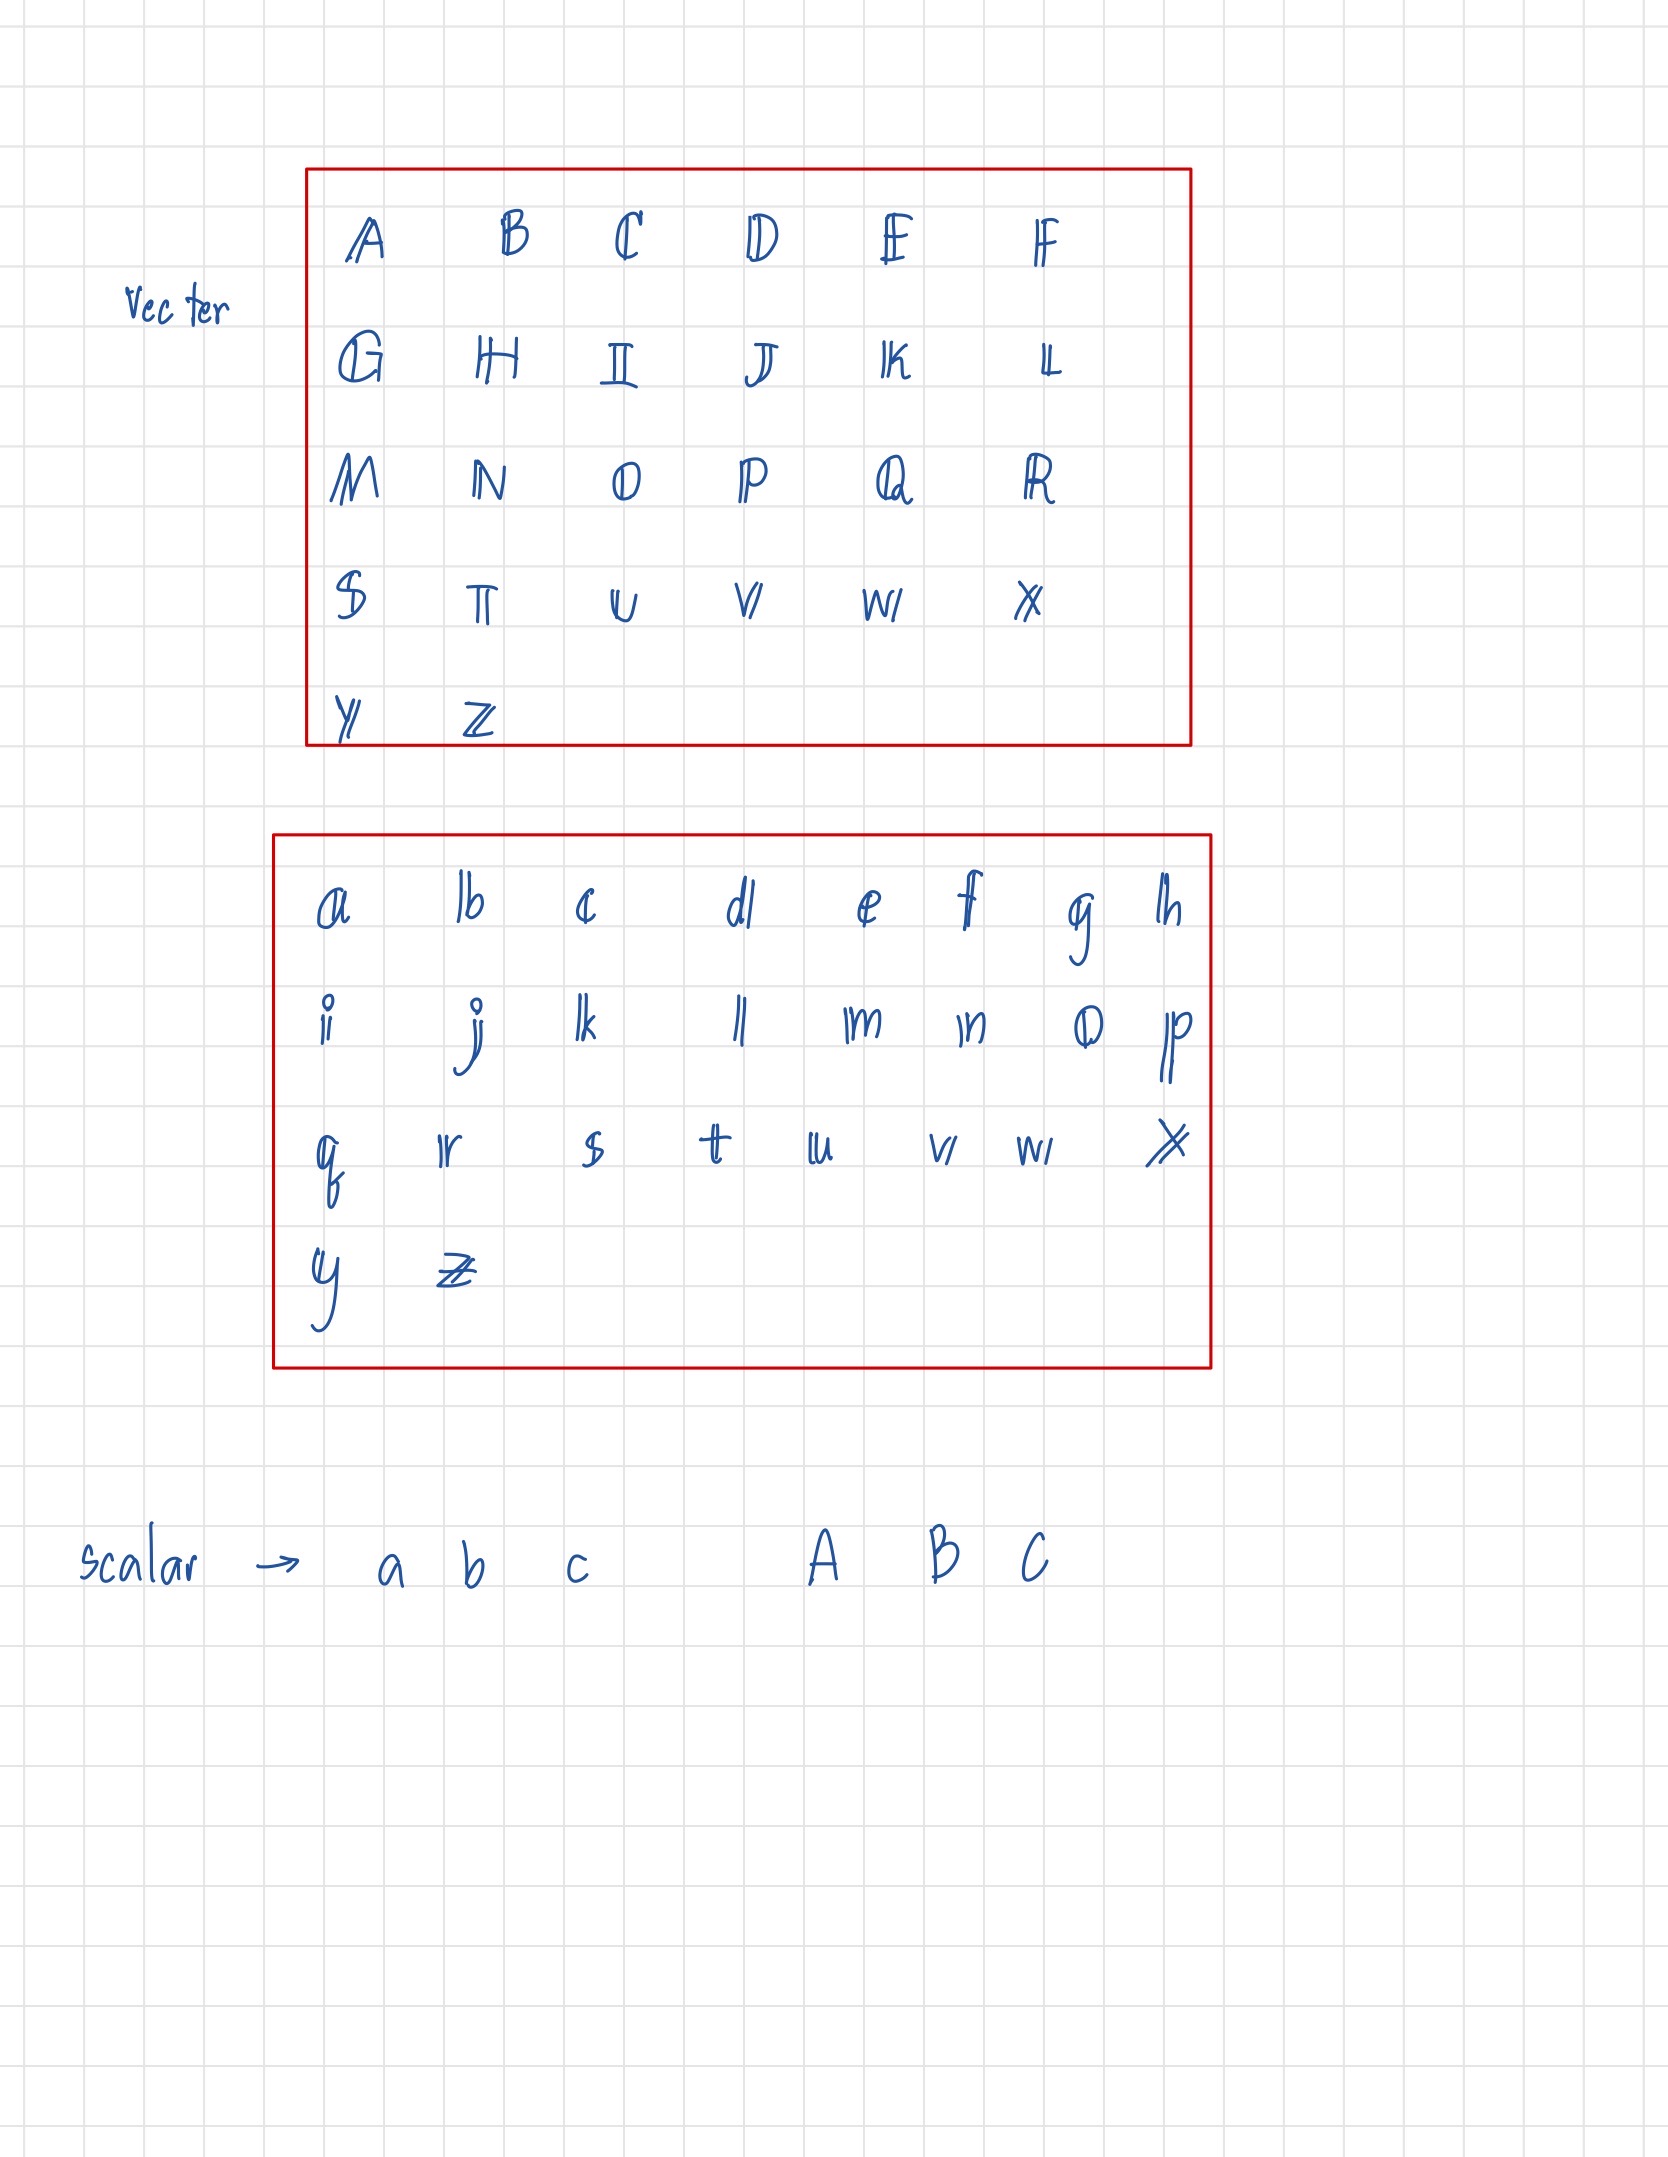 𝔸 𝔹 ℂ 𝔻 𝔼 𝔽
Vecter
𝔾 ℍ 𝕀 𝕁 𝕂 𝕃
𝕄 ℕ 𝕆 ℙ ℚ ℝ
𝕊 𝕋 𝕌 𝕍 𝕎 𝕏
𝕐 ℤ
𝕒 𝕓 𝕔 𝕕 𝕖 𝕗 𝕘 𝕙
𝕚 𝕛 𝕜 𝕝 𝕞 𝕟 𝕠 𝕡
𝕢 𝕣 𝕤 𝕥 𝕦 𝕧 𝕨 𝕩
𝕪 𝕫
scalar → a b c A B C